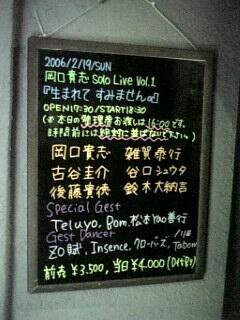 2006/2/19/SUN
岡口貴志 Solo Live Vol.1
『生まれて すみません』
OPEN17:30/START18:30
(※本日の整理券お渡しは16:00です。
時間前には絶対に並ばないで下さい。)
岡口貴志 雑賀泰行
古谷圭介 谷口シュウタ
後藤貴徳 鈴木大納言
Special Gest
Teluyo, Bom, 松本Yao善行
Gest Dancer
ZO賦, Insence, クローバーズ, Tabow
前売 ¥3,500, 当日 ¥4,000 (D代別)